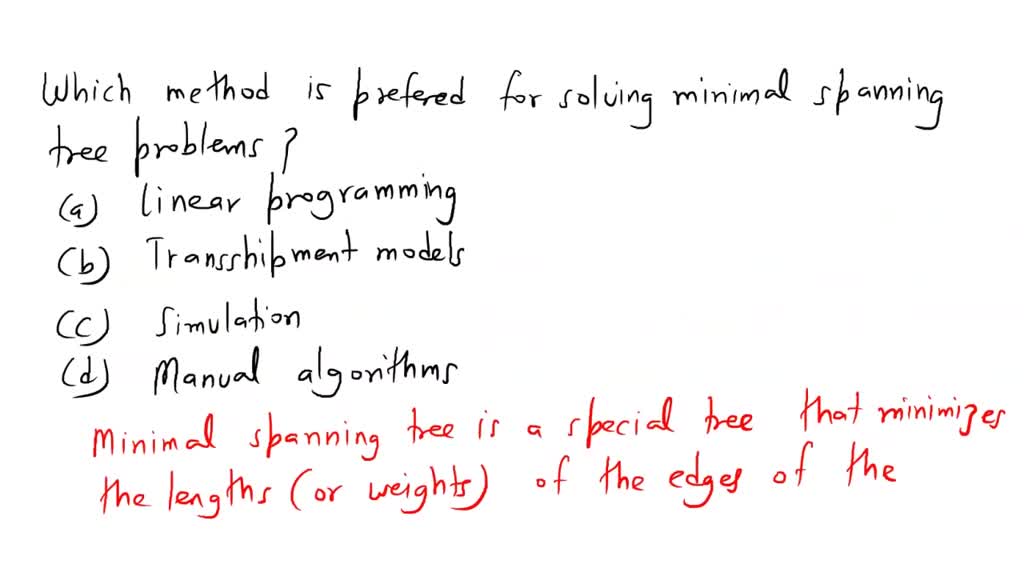 Which method is prefered for solving minimal spanning
tree problems?
(a) linear programming
(b) Transshipment models
(c) Simulation
(d) Manual algorithms
Minimal spanning tree is a special tree that minimizes
the lengths (or weights) of the edges of the